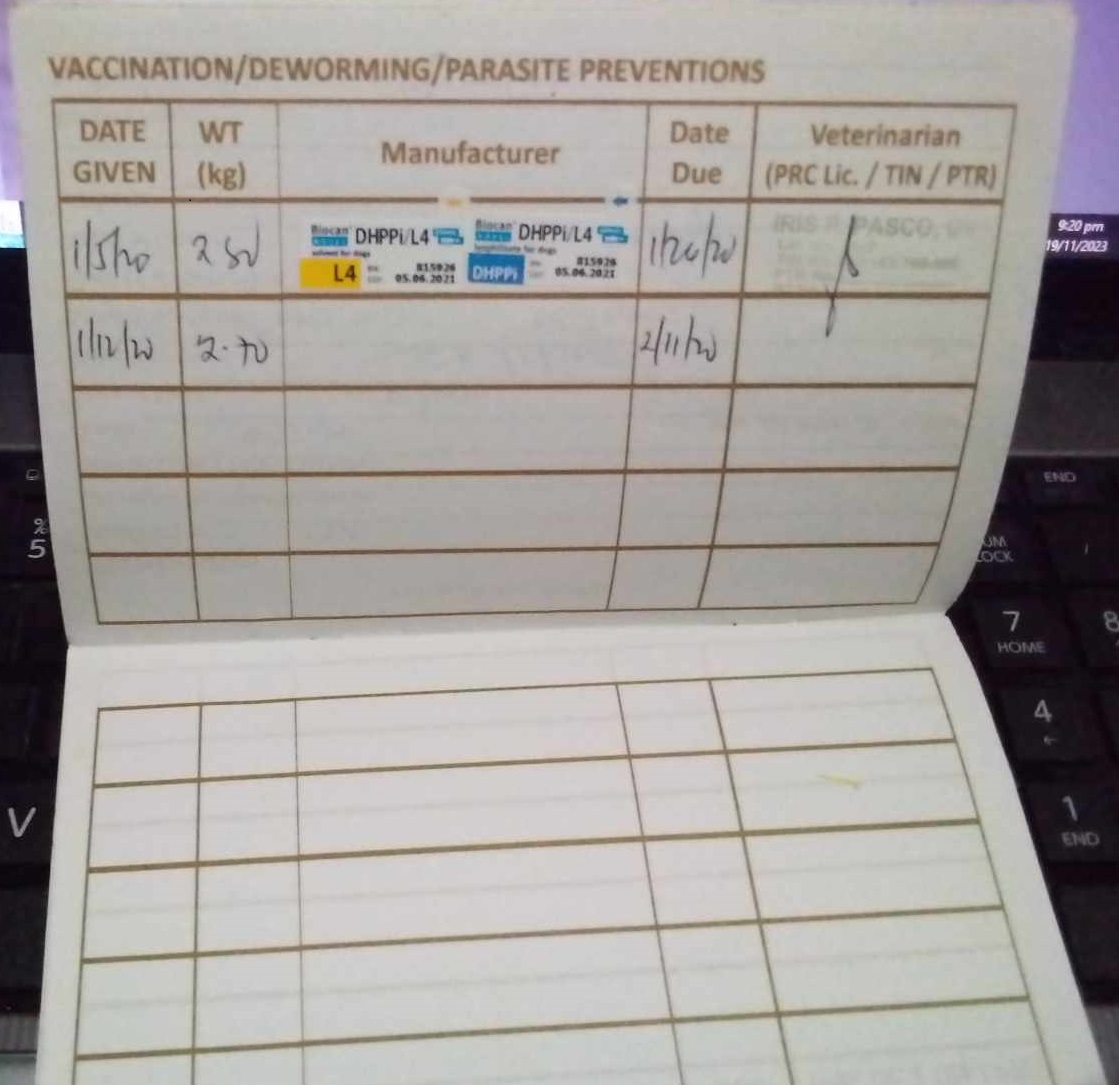 VACCINATION/DEWORMING/PARASITE PREVENTIONS
DATE GIVEN
WT (kg)
Manufacturer
Date Due
Veterinarian (PRC Lic. / TIN / PTR)
1/5/20
2.50
Biocan DHPPi/L4
solvent for dogs
L4 815926
05.06.2021
Biocan DHPPi/L4
lyophilisate for dogs
DHPPi 815926
05.06.2021
1/26/20
IRIS PASCO,
1/12/20
2.70
2/11/20
9:20 pm
19/11/2023
%
5
V
END
LOCK
7
HOME
8
4
←
1
END